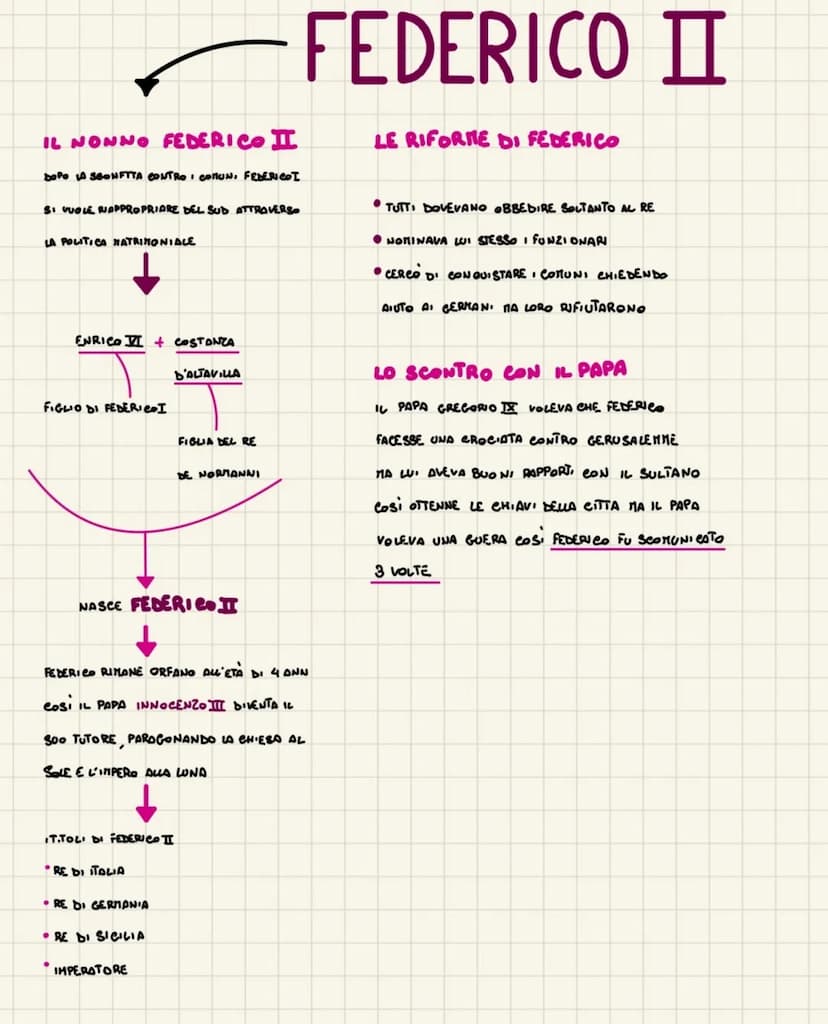 FEDERICO II
IL NONNO FEDERICO II
DOPO LA SCONFITTA CONTRO I COMUNI FEDERICO I
SI VUOLE RIAPPROPRIARE DEL SUD ATTRAVERSO
LA POLITICA MATRIMONIALE
ENRICO VI + COSTANZA
D'ALTAVILLA
FIGLIO DI FEDERICO I
FIGLIA DEL RE
DE NORMANNI
NASCE FEDERICO II
FEDERICO RIMANE ORFANO ALL'ETÀ DI 4 ANN
COSÌ IL PAPA INNOCENZO III DIVENTA IL
SUO TUTORE, PARAGONANDO LA CHIESA AL
SOLE E L'IMPERO ALLA LUNA
I TITOLI DI FEDERICO II
• RE DI ITALIA
• RE DI GERMANIA
• RE DI SICILIA
• IMPERATORE
LE RIFORME DI FEDERICO
• TUTTI DOVEVANO OBBEDIRE SOLTANTO AL RE
• NOMINAVA LUI STESSO I FUNZIONARI
• CERCÒ DI CONQUISTARE I COMUNI CHIEDENDO
AIUTO AI GERMANI MA LORO RIFIUTARONO
LO SCONTRO CON IL PAPA
IL PAPA GREGORIO IX VOLEVA CHE FEDERICO
FACESSE UNA CROCIATA CONTRO GERUSALEMME
MA LUI AVEVA BUONI RAPPORTI CON IL SULTANO
COSÌ OTTENNE LE CHIAVI DELLA CITTA MA IL PAPA
VOLEVA UNA GUERA COSÌ FEDERICO FU SCOMUNICATO
3 VOLTE